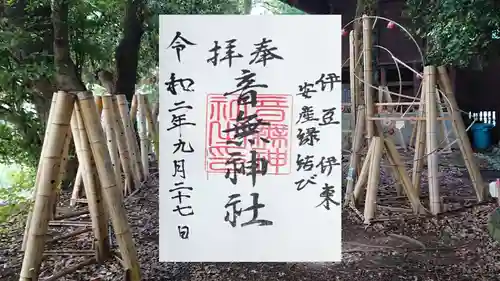 伊豆 伊東
安産縁結び
奉拝
音無神社
令和二年九月二十七日
音無神社之印